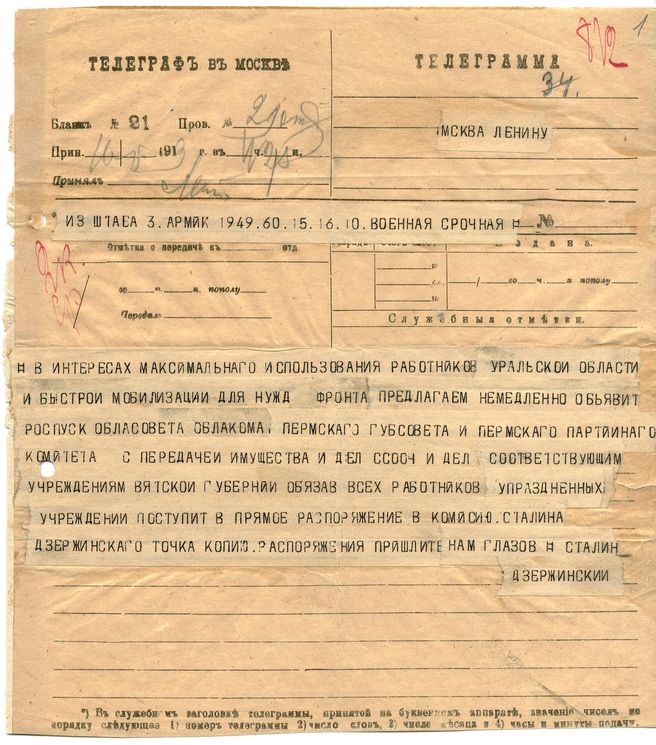 1
812
ТЕЛЕГРАФЪ ВЪ МОСКВѢ
ТЕЛЕГРАММА
34.
Бланкъ № 21 Пров. №
МСКВА ЛЕНИНУ
Прин. 191 г. въ ч. м.
Принялъ
*ИЗ ШТАБА 3. АРМИК 1949.60.15.16.10.ВОЕННАЯ СРОЧНАЯ ¤ №
Отмѣтка о передачѣ въ отд.
Подана.
го ч. м. пополу
го ч. м. пополу
Передалъ
Служебныя отмѣтки.
¤ В ИНТЕРЕСАХ МАКСИМАЛЬНАГО ИСПОЛЬЗОВАНИЯ РАБОТНИКОВ УРАЛЬСКОИ ОБЛАСТИ
И БЫСТРОИ МОБИЛИЗАЦИИ ДЛЯ НУЖД ФРОНТА ПРЕДЛАГАЕМ НЕМЕДЛЕННО ОБЬЯВИТ
РОСПУСК ОБЛАСОВЕТА ОБЛАКОМА, ПЕРМСКАГО ГУБСОВЕТА И ПЕРМСКАГО ПАРТИИНАГО
КОМИТЕТА С ПЕРЕДАЧЕИ ИМУЩЕСТВА И ДЕЛ ССООЧ И ДЕЛ СООТВЕТСТВУЮЩИМ
УЧРЕЖДЕНИЯМ ВЯТСКОИ ГУБЕРНИИ ОБЯЗАВ ВСЕХ РАБОТНИКОВ УПРАЗДНЕННЫХ
УЧРЕЖДЕНИИ ПОСТУПИТ В ПРЯМОЕ РАСПОРЯЖЕНИЕ В КОМИСИЮ.СТАЛИНА
ДЗЕРЖИНСКАГО ТОЧКА КОПИЮ.РАСПОРЯЖЕНИЯ ПРИШЛИТЕ НАМ ГЛАЗОВ ¤ СТАЛИН
ДЗЕРЖИНСКИИ
*) Въ служебномъ заголовкѣ телеграммы, принятой на буквенномъ аппаратѣ, значеніе чиселъ по
порядку слѣдующее 1) номеръ телеграммы 2) число словъ, 3) число мѣсяца и 4) часы и минуты подачи.